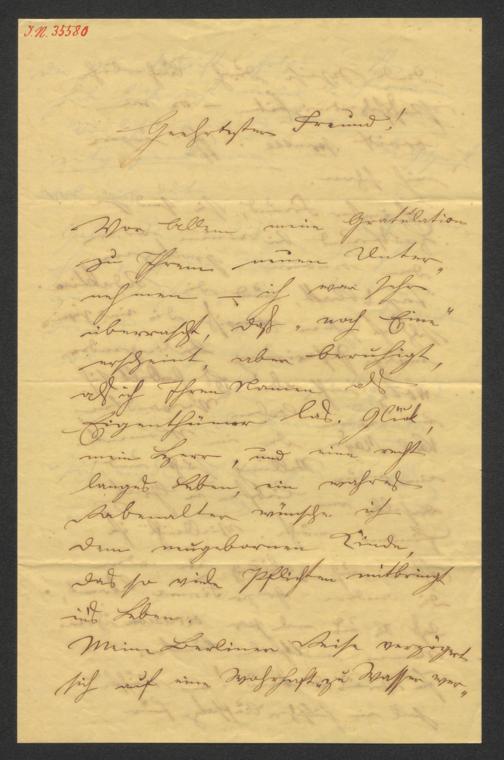 J.N. 35580
Geehrtester Freund!
Vor Allem meine Gratulation
zu Ihrem neuen Unter-
nehmen – ich war sehr
überrascht, daß „noch Eine"
erscheint, aber beruhigt,
als ich Ihren Namen als
Eigenthümer las. Glück,
mein Herr, und ein recht
langes Leben, ein wahres
Rabenalter wünsche ich
dem neugebornen Kinde,
das so viele Pflichten mitbringt
ins Leben.
Meine Berliner Reise verzögert
sich auf eine Wahrhaft zu Wasser wer-